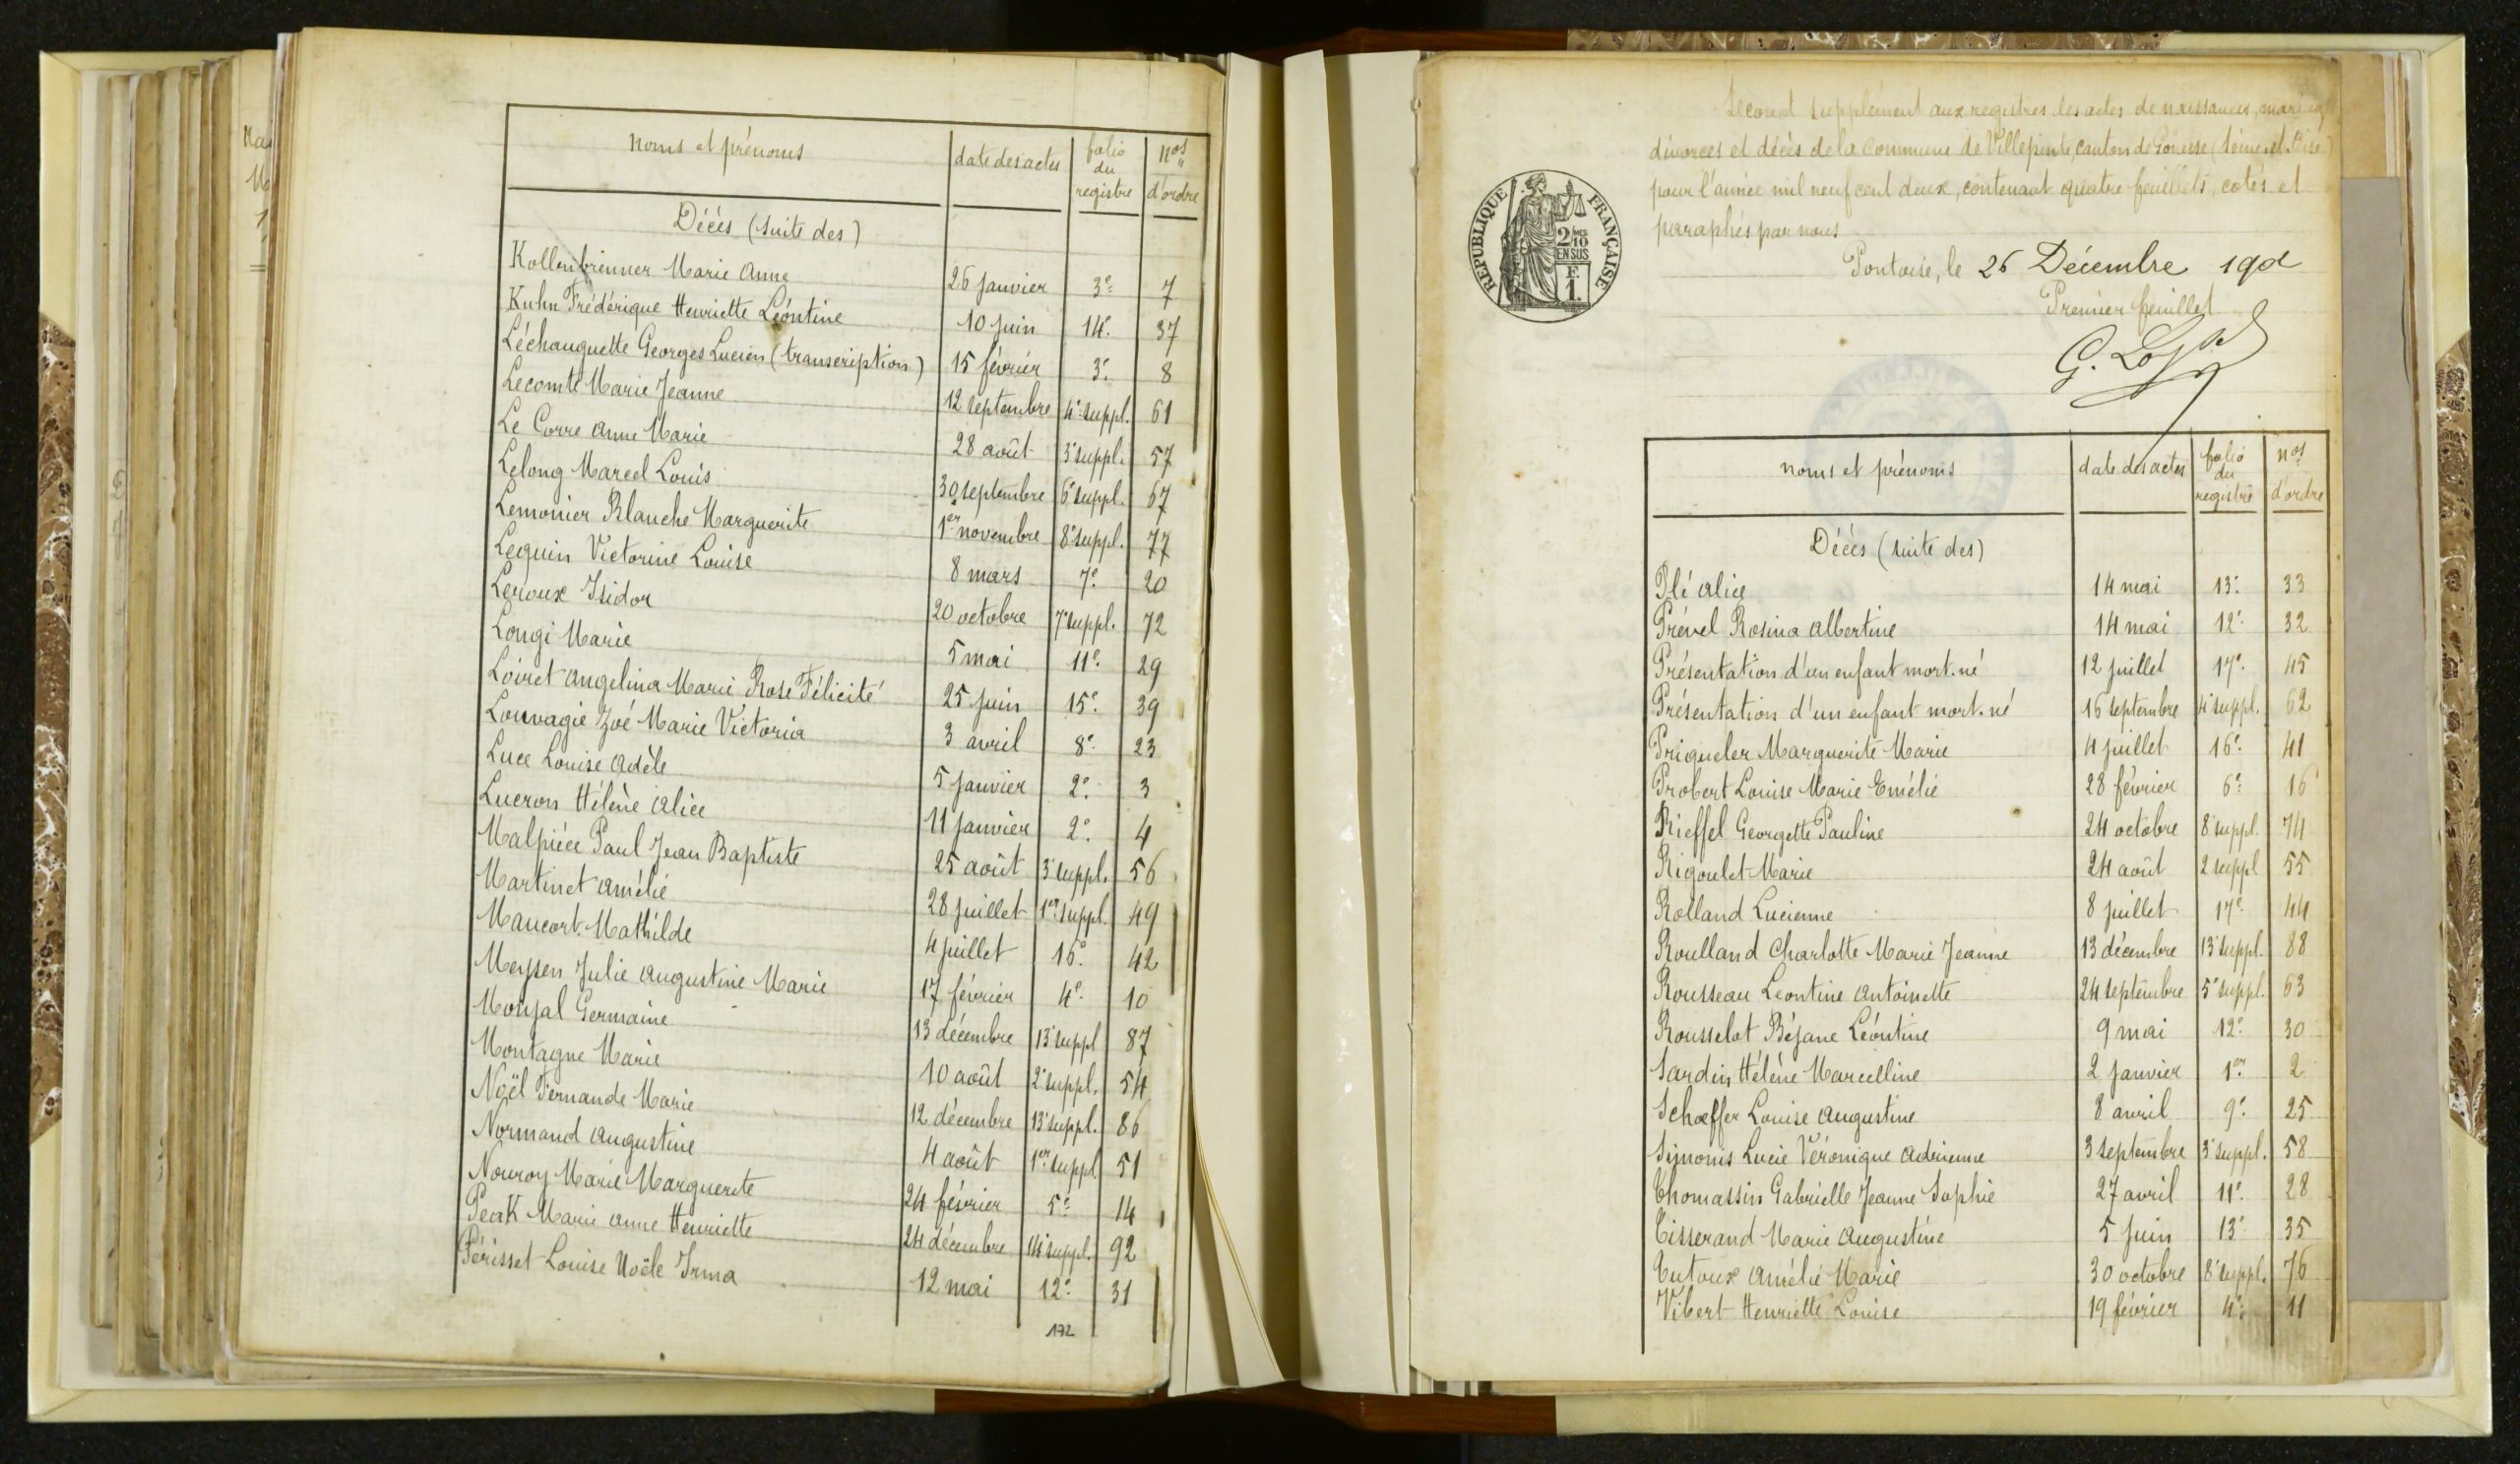 noms et prénoms | date des actes | folio du registre | nos d'ordre
Décès (suite des)
Kollenbrenner Marie Anne | 26 janvier | 3e | 7
Kuhn Frédérique Henriette Léontine | 10 juin | 14e | 37
Léchauguette Georges Lucien (transcription) | 15 février | 3e | 8
Lecomte Marie Jeanne | 12 septembre | 4e suppl. | 61
Le Corre Anne Marie | 28 août | 3e suppl. | 57
Lelong Marcel Louis | 30 septembre | 6e suppl. | 67
Lemonier Blanche Marguerite | 1er novembre | 8e suppl. | 77
Lequin Victorine Louise | 8 mars | 7e | 20
Leroux Isidor | 20 octobre | 7e suppl. | 72
Longi Marie | 5 mai | 11e | 29
Loiret Angelina Marie Rose Félicité | 25 juin | 15e | 39
Louvagie Zoé Marie Victoria | 3 avril | 8e | 23
Luce Louise Adèle | 5 janvier | 2e | 3
Lucron Hélène Alice | 11 janvier | 2e | 4
Malpiéce Paul Jean Baptiste | 25 août | 3e suppl. | 56
Martinet Amélie | 28 juillet | 1er suppl. | 49
Maucort Mathilde | 4 juillet | 16e | 42
Meysen Julie Augustine Marie | 17 février | 4e | 10
Monjal Germaine | 13 décembre | 13e suppl | 87
Montagne Marie | 10 août | 2e suppl. | 54
Noël Fernande Marie | 12 décembre | 13e suppl. | 86
Normand Augustine | 4 août | 1er suppl | 51
Nouroy Marie Marguerite | 24 février | 5e | 14
Peak Marie Anne Henriette | 24 décembre | 14e suppl. | 92
Périsset Louise Noële Irma | 12 mai | 12e | 31
172
Second supplément aux registres des actes de naissances, mariages
divorces et décès de la Commune de Villepinte, canton de Gonesse (Seine et Oise)
pour l'année mil neuf cent deux, contenant quatre feuillets, cotés et
paraphés par nous
Pontoise, le 26 Décembre 1902
Premier feuillet
RÉPUBLIQUE FRANÇAISE
2/10 MES
EN SUS
F.
1.
noms et prénoms | date des actes | folio du registre | nos d'ordre
Décès (suite des)
Plé Alice | 14 mai | 13e | 33
Prével Rosina Albertine | 14 mai | 12e | 32
Présentation d'un enfant mort-né | 12 juillet | 17e | 45
Présentation d'un enfant mort-né | 16 septembre | 4e suppl. | 62
Prigueler Marguerite Marie | 4 juillet | 16e | 41
Probert Louise Marie Emélie | 28 février | 6e | 16
Rieffel Georgette Pauline | 24 octobre | 8e suppl. | 74
Rigoulet Marie | 24 août | 2 suppl | 55
Rolland Lucienne | 8 juillet | 17e | 44
Roulland Charlotte Marie Jeanne | 13 décembre | 13e suppl. | 88
Rousseau Léontine Antoinette | 24 septembre | 5e suppl. | 63
Rousselot Béjane Léontine | 9 mai | 12e | 30
Sardin Hélène Marcelline | 2 janvier | 1er | 2
Schæffer Louise Augustine | 8 avril | 9e | 25
Simonis Lucie Véronique Adrienne | 3 septembre | 3e suppl. | 58
Thomassin Gabrielle Jeanne Sophie | 27 avril | 11e | 28
Tisserand Marie Augustine | 5 juin | 13e | 35
Tutoux Amélie Marie | 30 octobre | 8e suppl. | 76
Vibert Henriette Louise | 19 février | 4e | 11